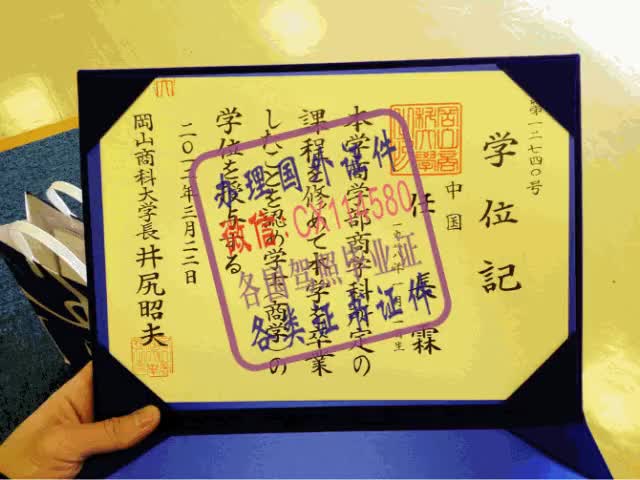 第一二七四〇号
学位記
中国
任 霖
本学商学部商学科所定の
課程を修めて本学を卒業
したことを認め学士(商学)の
学位を授与する
三月二二日
岡山商科大学長 井尻昭夫
办理国外证件
微信
各国驾照毕业证
各类证书证件